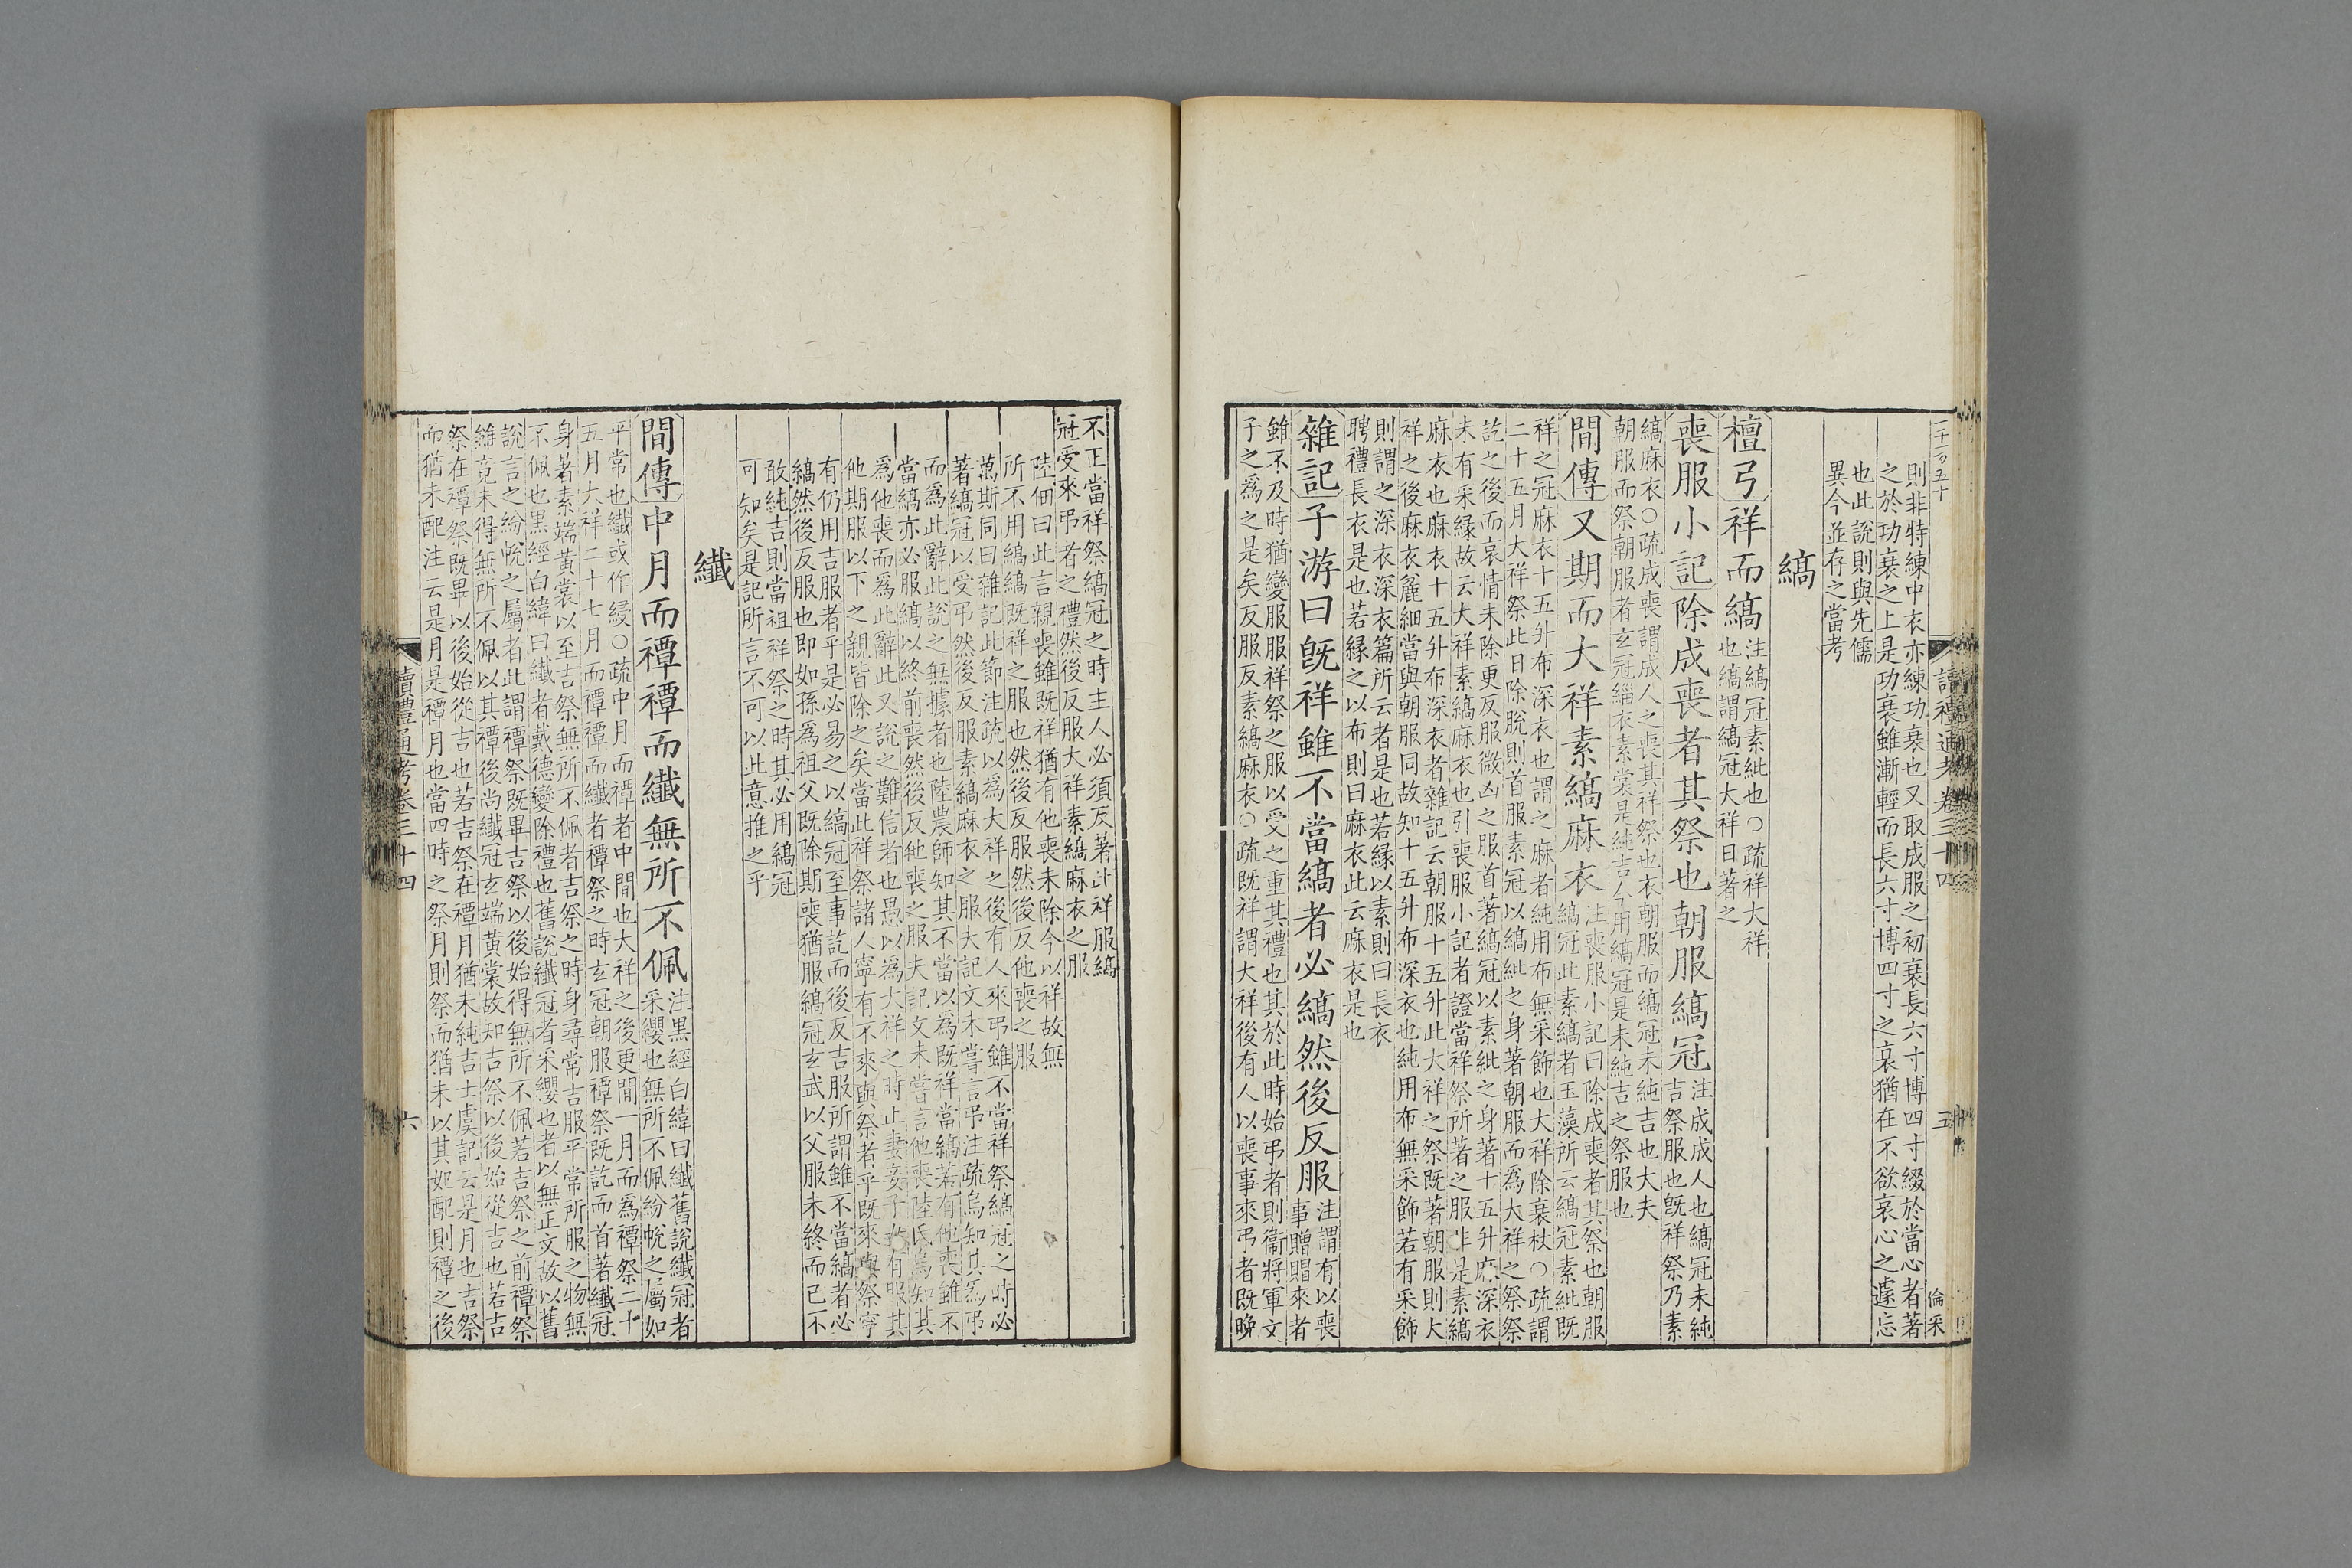 一千一百五十
讀禮通考卷三十四
五
倫采
則非特練中衣亦練功衰也又取成服之初衰長六寸博四寸綴於當心者著
之於功衰之上是功衰雖漸輕而長六寸博四寸之哀猶在不欲哀心之遽忘
也此說則與先儒
異今並存之當考
縞
檀弓祥而縞
注縞冠素紕也○疏祥大祥
也縞謂縞冠大祥日著之
喪服小記除成喪者其祭也朝服縞冠
注成成人也縞冠未純
吉祭服也既祥祭乃素
縞麻衣○疏成喪謂成人之喪其祥祭也衣朝服而縞冠未純吉也大夫
朝服而祭朝服者玄冠緇衣素裳是純吉今用縞冠是未純吉之祭服也
間傳又期而大祥素縞麻衣
注喪服小記曰除成喪者其祭也朝服
縞冠此素縞者玉藻所云縞冠素紕既
祥之冠麻衣十五升布深衣也謂之麻者純用布無采飾也大祥除衰杖○疏謂
二十五月大祥祭此日除脫則首服素冠以縞紕之身著朝服而為大祥之祭祭
訖之後而哀情未除更反服微凶之服首著縞冠以素紕之身著十五升麻深衣
未有采緣故云大祥素縞麻衣也引喪服小記者證當祥祭所著之服非是素縞
麻衣也麻衣十五升布深衣者雜記云朝服十五升此大祥之祭既著朝服則大
祥之後麻衣麤細當與朝服同故知十五升布深衣也純用布無采飾若有采飾
則謂之深衣深衣篇所云者是也若緣以素則曰長衣
聘禮長衣是也若緣之以布則曰麻衣此云麻衣是也
雜記子游曰既祥雖不當縞者必縞然後反服
注謂有以喪
事贈賵來者
雖不及時猶變服服祥祭之服以受之重其禮也其於此時始弔者則衞將軍文
子之為之是矣反服服反素縞麻衣○疏既祥謂大祥後有人以喪事來弔者既晚
不正當祥祭縞冠之時主人必須反著此祥服縞
冠受來弔者之禮然後反服大祥素縞麻衣之服
陸佃曰此言親喪雖既祥猶有他喪未除今以祥故無
所不用縞縞既祥之服也然後反服然後反他喪之服
萬斯同曰雜記此節注疏以為大祥之後有人來弔雖不當祥祭縞冠之時必
著縞冠以受弔然後反服素縞麻衣之服大記文未嘗言弔注疏烏知其為弔
而為此辭此說之無據者也陸農師知其不當以為既祥當縞若有他喪雖不
當縞亦必服縞以終前喪然後反他喪之服夫記文未嘗言他喪陸氏烏知其
為他喪而為此辭此又說之難信者也愚以為大祥之時止妻妾子女有服其
他期服以下之親皆除之矣當此祥祭諸人寧有不來與祭者乎既來與祭寧
有仍用吉服者乎是必易之以縞冠至事訖而後反吉服所謂雖不當縞者必
縞然後反服也即如孫為祖父既除期喪猶服縞冠玄武以父服未終而已不
敢純吉則當祖祥祭之時其必用縞冠
可知矣是記所言不可以此意推之乎
纖
間傳中月而禫禫而纖無所不佩
注黑經白緯曰纖舊說纖冠者
采纓也無所不佩紛帨之屬如
平常也纖或作綅○疏中月而禫者中間也大祥之後更間一月而為禫祭二十
五月大祥二十七月而禫禫而纖者禫祭之時玄冠朝服禫祭既訖而首著纖冠
身著素端黃裳以至吉祭無所不佩者吉祭之時身尋常吉服平常所服之物無
不佩也黑經白緯曰纖者戴德變除禮也舊說纖冠者采纓也者以無正文故以舊
說言之紛帨之屬者此謂禫祭既畢吉祭以後始得無所不佩若吉祭之前禫祭
雖竟未得無所不佩以其禫後尚纖冠玄端黃裳故知吉祭以後始從吉也若吉
祭在禫祭既畢以後始從吉也若吉祭在禫月猶未純吉士虞記云是月也吉祭
而猶未配注云是月是禫月也當四時之祭月則祭而猶未以其妃配則禫之後
讀禮通考卷三十四
六